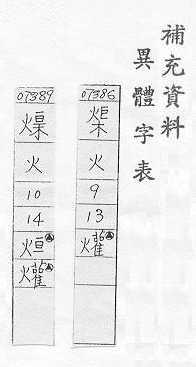 補充資料
異體字表
07386
火
9
13
爟
07389
火
10
14
烜
爟